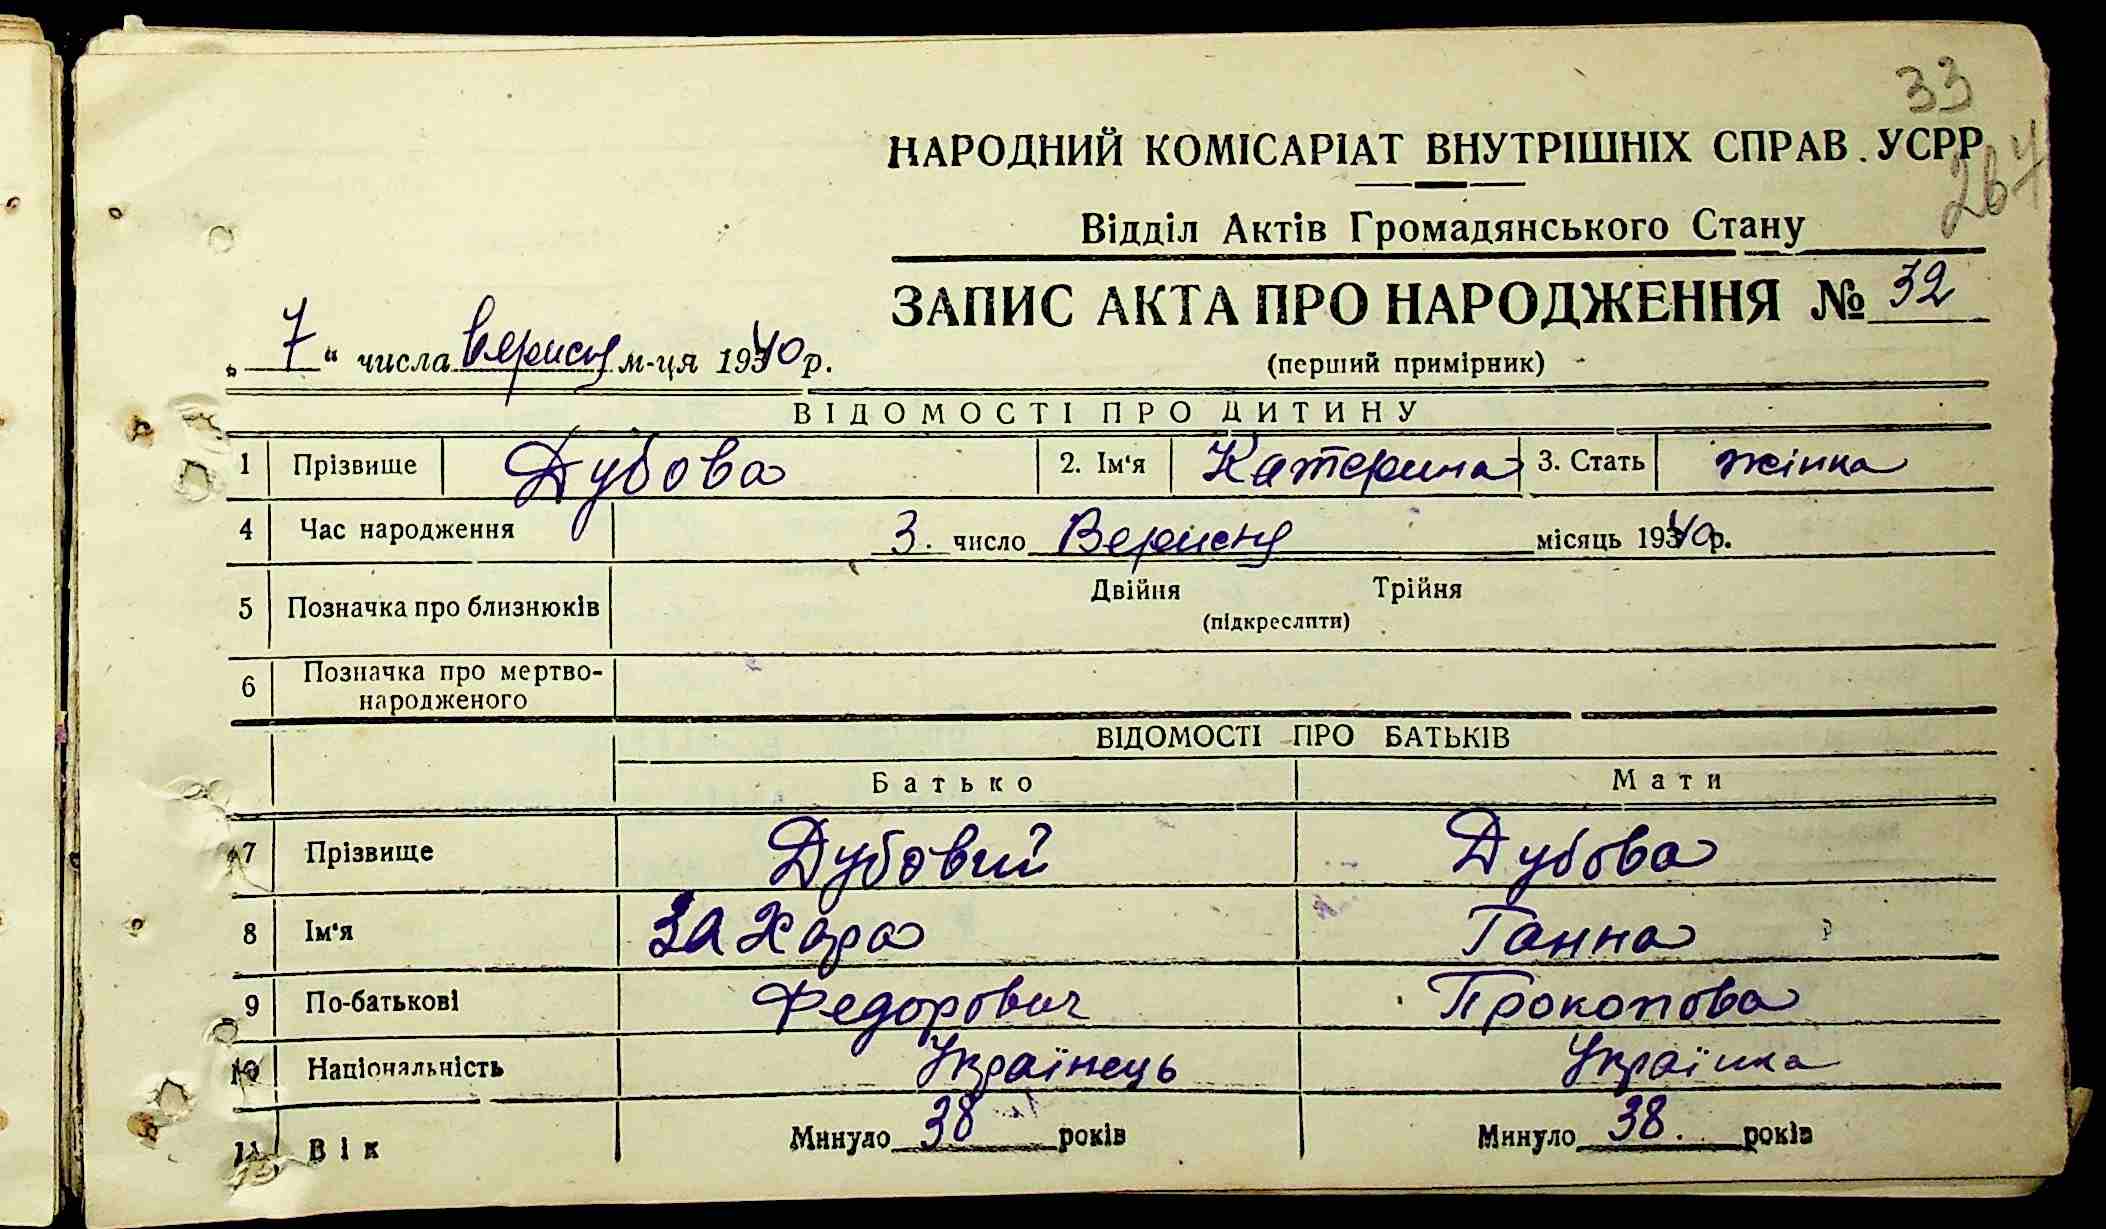 33
НАРОДНИЙ КОМІСАРІАТ ВНУТРІШНІХ СПРАВ УСРР
264
Відділ Актів Громадянського Стану
ЗАПИС АКТА ПРО НАРОДЖЕННЯ № 32
„ 7 “ числа вересня м-ця 1940 р.
(перший примірник)
ВІДОМОСТІ ПРО ДИТИНУ
1 Прізвище Дубова 2. Ім'я Катерина 3. Стать жінка
4 Час народження 3. число Вересня місяць 1940 р.
5 Позначка про близнюків Двійня Трійня
(підкреслити)
6 Позначка про мертво-
народженого
ВІДОМОСТІ ПРО БАТЬКІВ
Батько Мати
7 Прізвище Дубовий Дубова
8 Ім'я Захара Ганна
9 По-батькові Федорович Прокопова
10 Національність Українець Українка
11 Вік Минуло 38 років Минуло 38. років